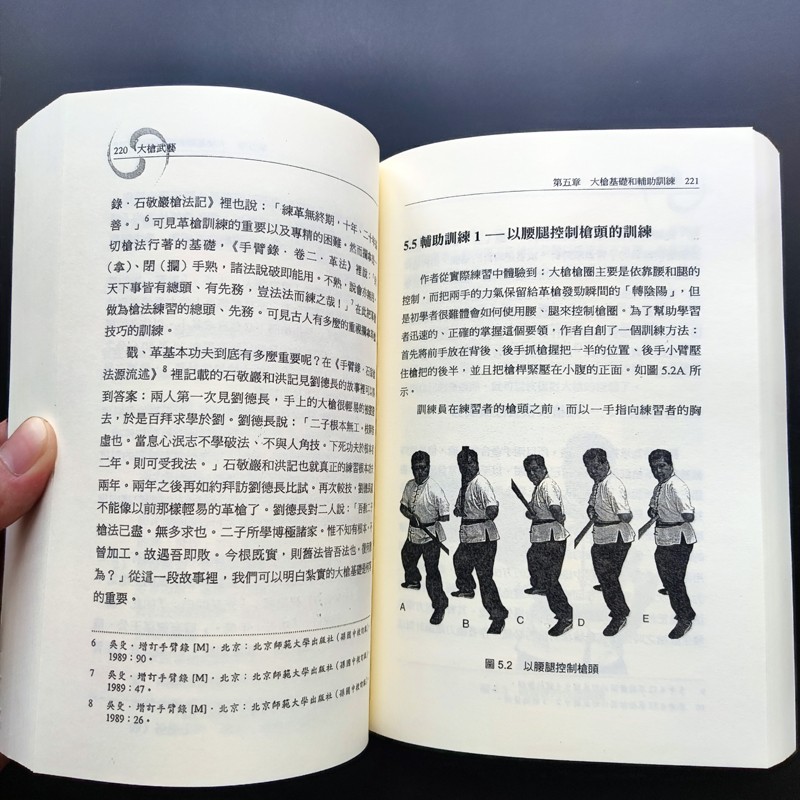 220 大槍武藝
錄·石敬巖槍法記》裡也說：「練革無終期，十年、二十年
善。」6 可見革槍訓練的重要以及專精的困難。然而
切槍行著的基礎，《手臂錄·卷二·革法》裡說：「
(拿)、閉(攔) 手熟，諸法說破即能用。不熟，說會亦
天下事皆有總頭、有先務，豈法法而練之哉！」7
做為槍法練習的總頭、先務。可見古人有多麼的重視
技巧的訓練。
戳、革基本功夫到底有多麼重要呢？在《手臂錄·石
法源流述》8 裡記載的石敬巖和洪記見劉德長的故事裡可以
到答案：兩人第一次見劉德長，手上的大槍很輕易的被
去，於是百拜求學於劉。劉德長說：「二子根本無工，
虛也。當息心泯志不學破法、不與人角技。下死功夫於根本
二年。則可受我法。」石敬巖和洪記也就真正的練習根本
兩年。兩年之後再如約拜訪劉德長比試。再次較技，劉德長
不能像以前那樣輕易的革槍了。劉德長對二人說：「吾
槍法已盡。無多求也。二子所學博極諸家。惟不知有根本，
曾加工。故遇吾即敗。今根既實，則舊法皆吾法也，復何
為？」從這一段故事裡，我們可以明白紮實的大槍基礎是
的重要。
6 吳殳·增訂手臂錄 [M]·北京：北京師範大學出版社
1989：90。
7 吳殳·增訂手臂錄 [M]·北京：北京師範大學出版社
1989：47。
8 吳殳·增訂手臂錄 [M]·北京：北京師範大學出版社
1989：26。
第五章 大槍基礎和輔助訓練 221
5.5 輔助訓練 1 ── 以腰腿控制槍頭的訓練
作者從實際練習中體驗到：大槍槍圈主要是依靠腰和腿的
控制，而把兩手的力氣保留給革槍發勁瞬間的「轉陰陽」，但
是初學者很難體會如何使用腰、腿來控制槍圈。為了幫助學習
者迅速的、正確的掌握這個要領，作者自創了一個訓練方法：
首先將前手放在背後、後手抓槍握把一半的位置、後手小臂壓
住槍把的後半，並且把槍桿緊壓在小腹的正面。如圖 5.2A 所
示。
訓練員在練習者的槍頭之前，而以一手指向練習者的胸
A B C D E
圖 5.2 以腰腿控制槍頭